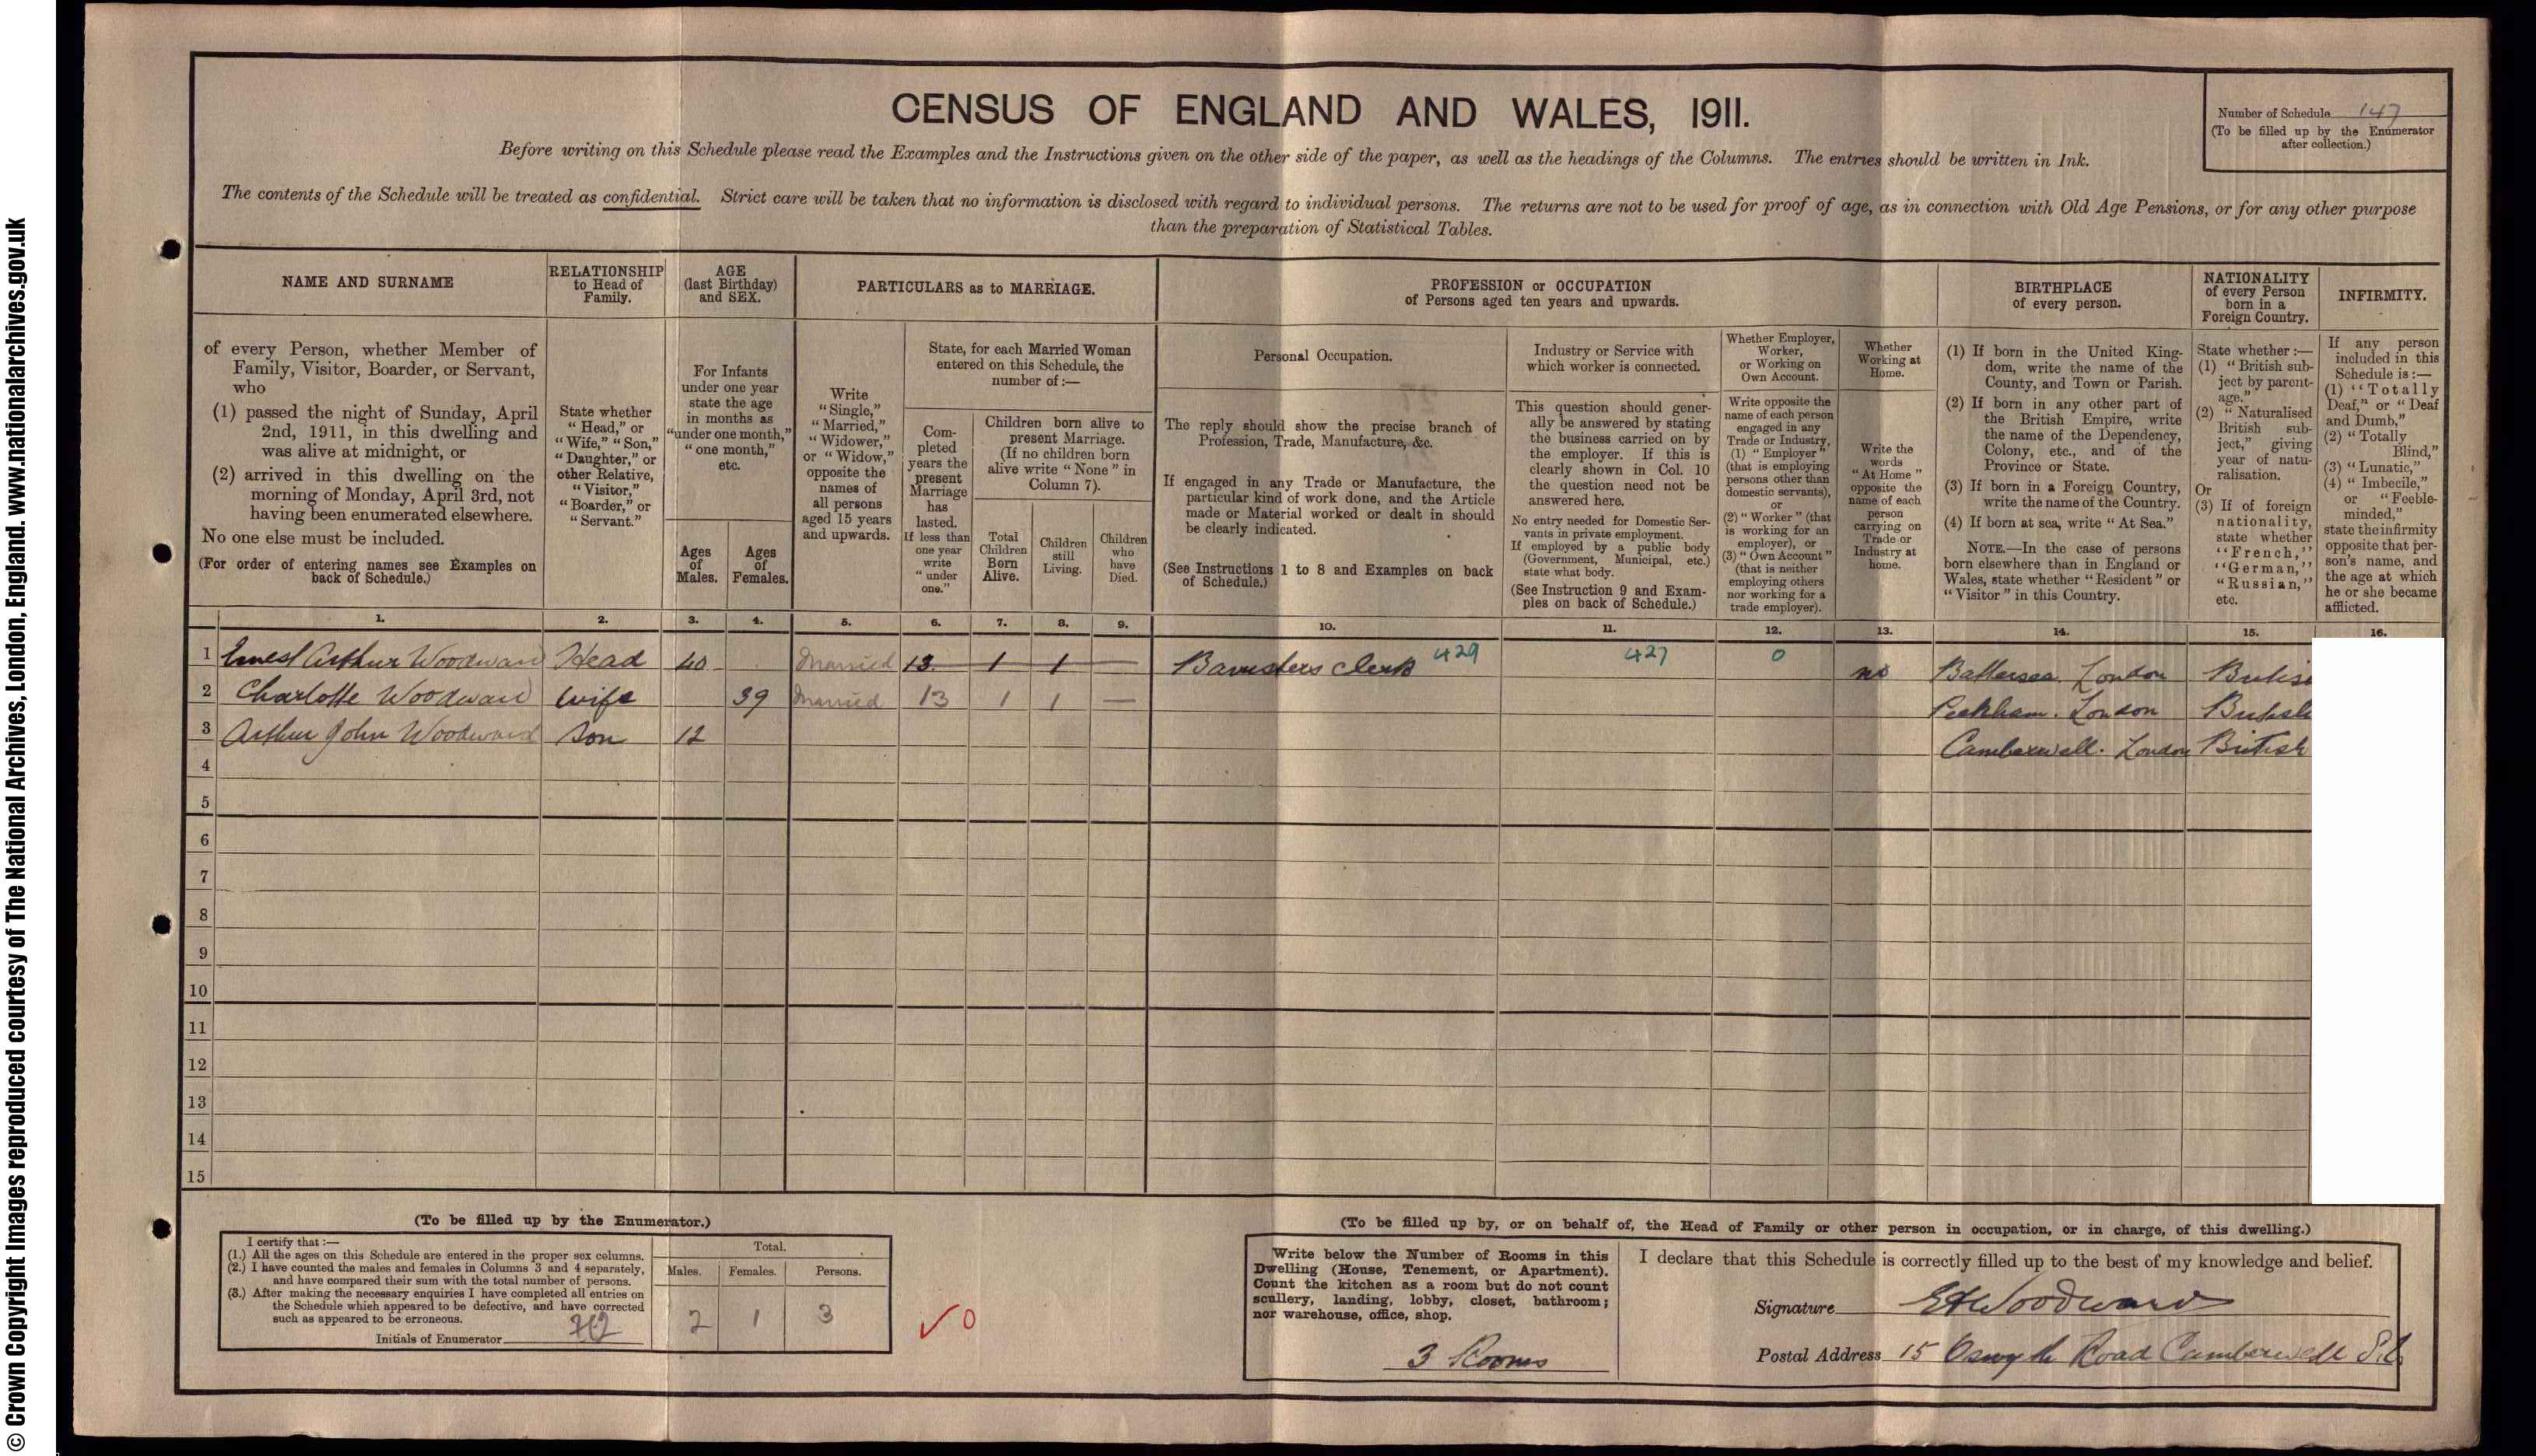 CENSUS OF ENGLAND AND WALES, 1911.
Number of Schedule 147
(To be filled up by the Enumerator
after collection.)
Before writing on this Schedule please read the Examples and the Instructions given on the other side of the paper, as well as the headings of the Columns. The entries should be written in Ink.
The contents of the Schedule will be treated as confidential. Strict care will be taken that no information is disclosed with regard to individual persons. The returns are not to be used for proof of age, as in connection with Old Age Pensions, or for any other purpose
than the preparation of Statistical Tables.
NAME AND SURNAME
of every Person, whether Member of
Family, Visitor, Boarder, or Servant,
who
(1) passed the night of Sunday, April
2nd, 1911, in this dwelling and
was alive at midnight, or
(2) arrived in this dwelling on the
morning of Monday, April 3rd, not
having been enumerated elsewhere.
No one else must be included.
(For order of entering names see Examples on
back of Schedule.)
RELATIONSHIP
to Head of
Family.
State whether
"Head," or
"Wife," "Son,"
"Daughter," or
other Relative,
"Visitor,"
"Boarder," or
"Servant."
AGE
(last Birthday)
and SEX.
For Infants
under one year
state the age
in months as
"under one month,"
"one month,"
etc.
Ages
of
Males.
Ages
of
Females.
PARTICULARS as to MARRIAGE.
Write
"Single,"
"Married,"
"Widower,"
or "Widow,"
opposite the
names of
all persons
aged 15 years
and upwards.
State, for each Married Woman
entered on this Schedule, the
number of :—
Com-
pleted
years the
present
Marriage
has
lasted.
If less than
one year
write
"under
one."
Children born alive to
present Marriage.
(If no children born
alive write "None" in
Column 7).
Total
Children
Born
Alive.
Children
still
Living.
Children
who
have
Died.
PROFESSION or OCCUPATION
of Persons aged ten years and upwards.
Personal Occupation.
The reply should show the precise branch of
Profession, Trade, Manufacture, &c.
If engaged in any Trade or Manufacture, the
particular kind of work done, and the Article
made or Material worked or dealt in should
be clearly indicated.
(See Instructions 1 to 8 and Examples on back
of Schedule.)
Industry or Service with
which worker is connected.
This question should gener-
ally be answered by stating
the business carried on by
the employer. If this is
clearly shown in Col. 10
the question need not be
answered here.
No entry needed for Domestic Ser-
vants in private employment.
If employed by a public body
(Government, Municipal, etc.)
state what body.
(See Instruction 9 and Exam-
ples on back of Schedule.)
Whether Employer,
Worker,
or Working on
Own Account.
Write opposite the
name of each person
engaged in any
Trade or Industry,
(1) "Employer"
(that is employing
persons other than
domestic servants),
or
(2) "Worker" (that
is working for an
employer), or
(3) "Own Account"
(that is neither
employing others
nor working for a
trade employer).
Whether
Working at
Home.
Write the
words
"At Home"
opposite the
name of each
person
carrying on
Trade or
Industry at
home.
BIRTHPLACE
of every person.
(1) If born in the United King-
dom, write the name of the
County, and Town or Parish.
(2) If born in any other part of
the British Empire, write
the name of the Dependency,
Colony, etc., and of the
Province or State.
(3) If born in a Foreign Country,
write the name of the Country.
(4) If born at sea, write "At Sea."
NOTE.—In the case of persons
born elsewhere than in England or
Wales, state whether "Resident" or
"Visitor" in this Country.
NATIONALITY
of every Person
born in a
Foreign Country.
State whether :—
(1) "British sub-
ject by parent-
age."
(2) "Naturalised
British sub-
ject," giving
year of natu-
ralisation.
Or
(3) If of foreign
nationality,
state whether
"French,"
"German,"
"Russian,"
etc.
INFIRMITY.
If any person
included in this
Schedule is :—
(1) "Totally
Deaf," or "Deaf
and Dumb,"
(2) "Totally
Blind,"
(3) "Lunatic,"
(4) "Imbecile,"
or "Feeble-
minded,"
state the infirmity
opposite that per-
son's name, and
the age at which
he or she became
afflicted.
1. 2. 3. 4. 5. 6. 7. 8. 9. 10. 11. 12. 13. 14. 15. 16.
1 Ernest Arthur Woodward Head 40 Married 13 1 1 — Barristers Clerk 429 427 0 no Battersea. London British
2 Charlotte Woodward Wife 39 Married 13 1 1 — Peckham. London British
3 Arthur John Woodward Son 12 Camberwell. London British
4
5
6
7
8
9
10
11
12
13
14
15
(To be filled up by the Enumerator.)
I certify that :—
(1.) All the ages on this Schedule are entered in the proper sex columns.
(2.) I have counted the males and females in Columns 3 and 4 separately,
and have compared their sum with the total number of persons.
(3.) After making the necessary enquiries I have completed all entries on
the Schedule which appeared to be defective, and have corrected
such as appeared to be erroneous.
Initials of Enumerator
Total.
Males. Females. Persons.
2 1 3
0
(To be filled up by, or on behalf of, the Head of Family or other person in occupation, or in charge, of this dwelling.)
Write below the Number of Rooms in this
Dwelling (House, Tenement, or Apartment).
Count the kitchen as a room but do not count
scullery, landing, lobby, closet, bathroom;
nor warehouse, office, shop.
3 Rooms
I declare that this Schedule is correctly filled up to the best of my knowledge and belief.
Signature EA Woodward
Postal Address 15 Oswyth Road Camberwell S.E.
© Crown Copyright Images reproduced courtesy of The National Archives, London, England. www.nationalarchives.gov.uk